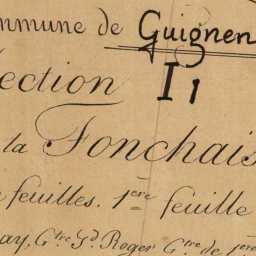 ommune de Guignen
ection I1
la Fonchais
feuilles. 1ère feuille
ay, Gtre Sd. Roger Gtre de 1ère